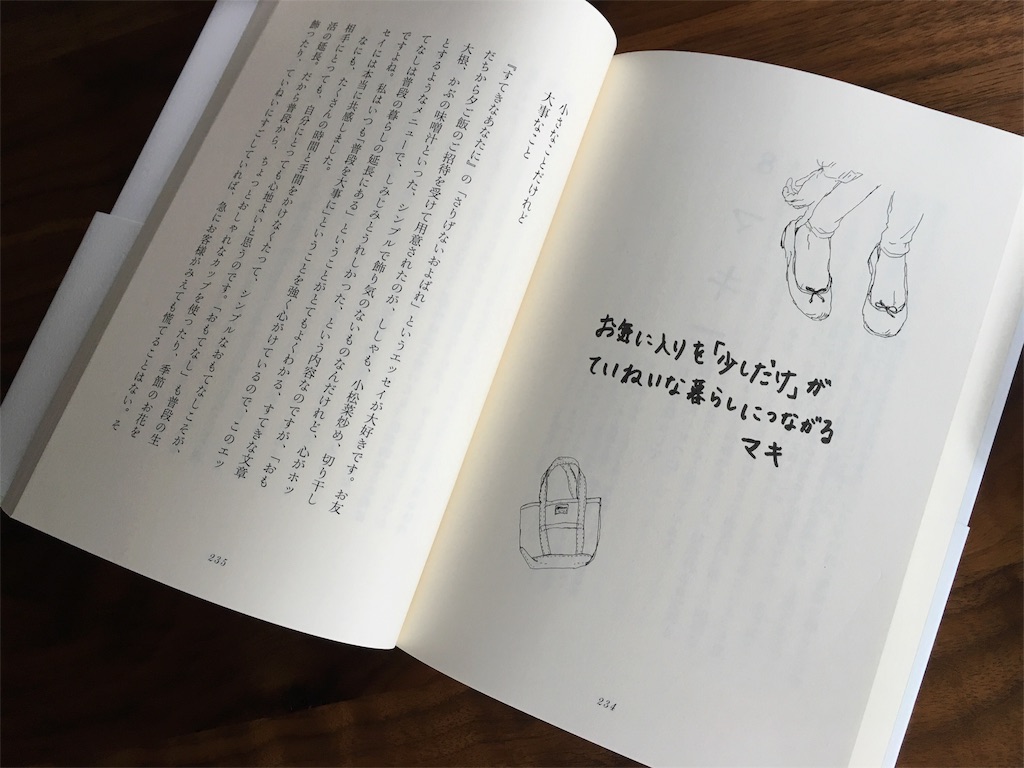 お気に入りを「少しだけ」が
ていねいな暮らしにつながる
マキ
234
小さなことだけれど
大事なこと
『すてきなあなたに』の「さりげないおよばれ」というエッセイが大好きです。お友
だちから夕ご飯のご招待を受けて用意されたのが、ししゃも、小松菜炒め、切り干し
大根、かぶの味噌汁といった、シンプルで飾り気のないものなんだけれど、心がホッ
とするようなメニューで、しみじみとうれしかった、という内容なのですが、「おも
てなしは普段の暮らしの延長にある」ということがとてもよくわかる、すてきな文章
ですよね。私はいつも「普段を大事に」ということを強く心がけているので、このエッ
セイには本当に共感しました。
なにも、たくさんの時間と手間をかけなくたって、シンプルなおもてなしこそが、
相手にとっても、自分にとっても心地よいと思うのです。「おもてなし」も普段の生
活の延長。だから普段から、ちょっとおしゃれなカップを使ったり、季節のお花を
飾ったり、ていねいにすごしていれば、急にお客様がみえても慌てることはない。そ
235